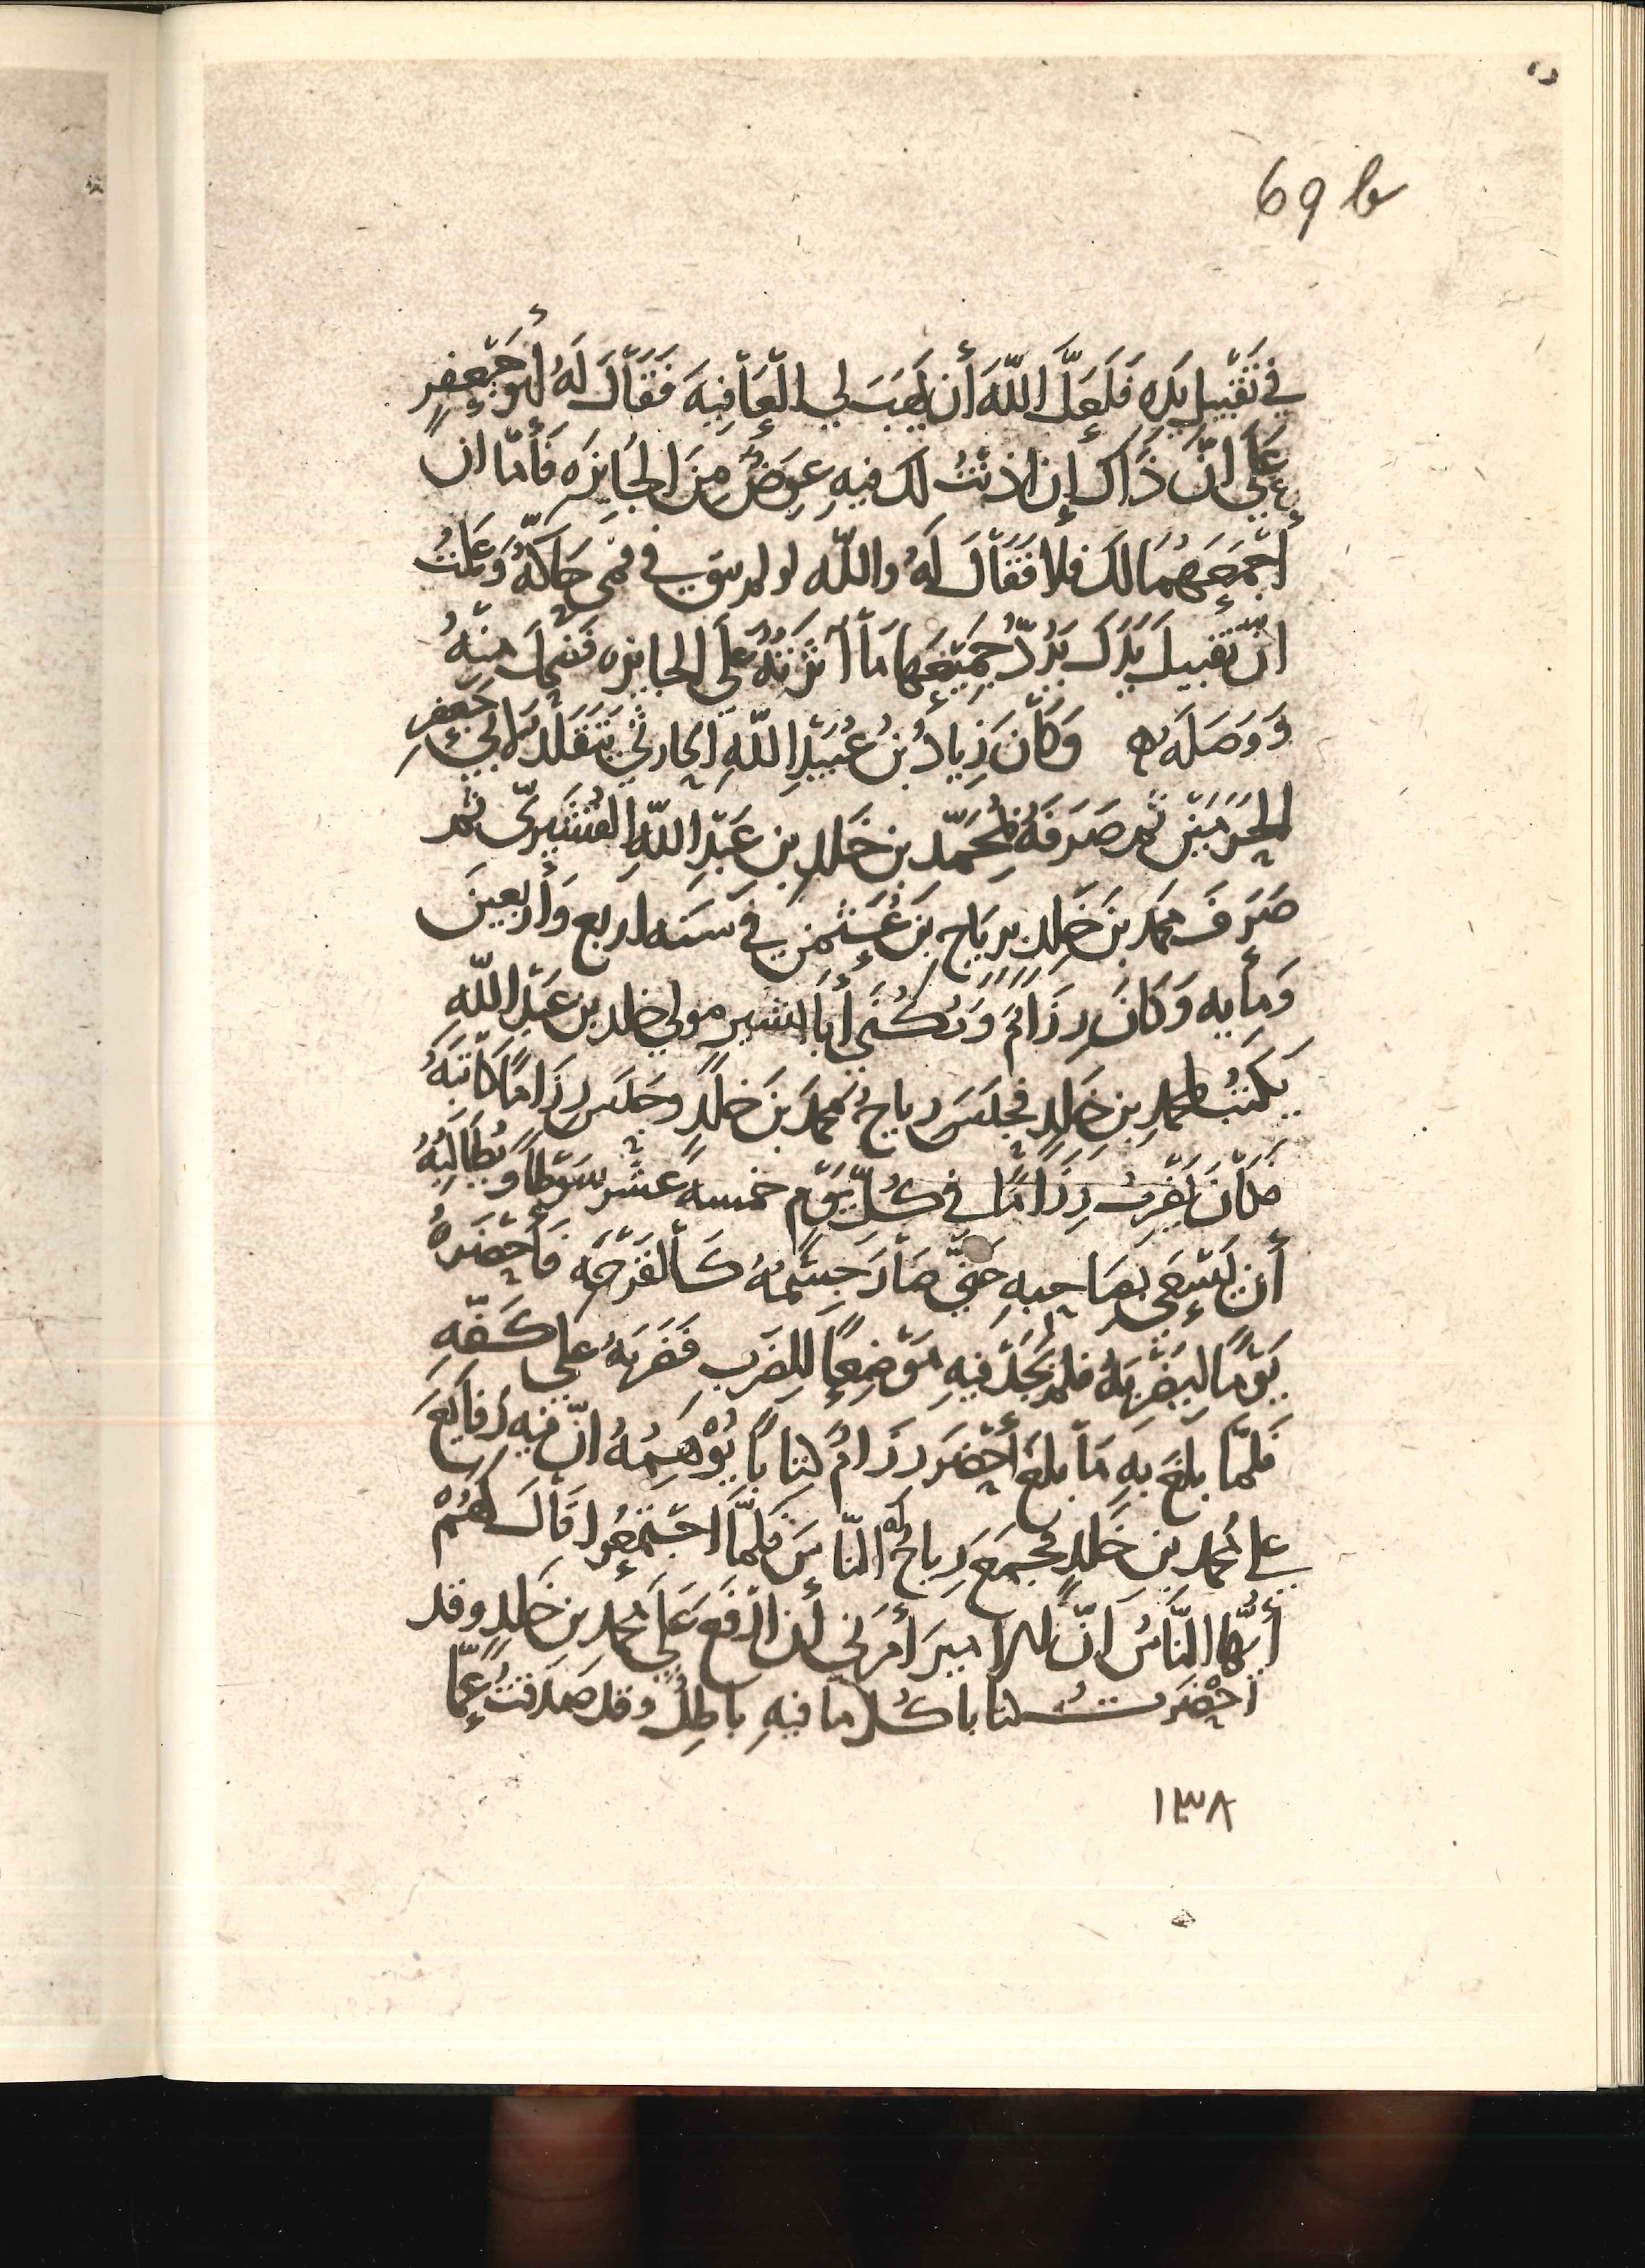 69 b
في تَقْبيلِ يَدِه فَلَعَلَّ اللّهَ أَن يَهَبَ لي الْعَافِيَةَ فَقَالَ لَهُ أبو جَعْفرٍ
عَلَى انّ ذَاكَ إن اذنْتُ لك فيهِ عِوَضٌ مِنَ الجَايزه فَأمّا ان
أجْمَعَهُمَا لكَ فلا فَقَالَ لَهُ والله لو لم يبق في فمى حَاكّة وَعَلمْتُ
انّ تقبيلَ يَدَكَ يَرُدّ جَمِيْعَها مَا آثَرْتُهُ عَلَى الجايزه فضَحِكَ مِنْهُ
وَوَصَلَه وَكَانَ زِيادُ بنُ عُبَيْدِ اللهِ الحارثي يَتَقَلَّد لابي جَعْفرٍ
الحَرَمَيْنِ ثم صَرَفَهُ بمُحَمّد بن خَلدِ بنِ عَبْدِ اللهِ القُشَيرىّ ثم
صَرَفَ محمد بنَ خَلدٍ بريَاحِ بنَ عُثمنَ في سَنَه اربع وَأربعينَ
وَمأيه وَكَانَ رِزَامٌ وَيُكْنَى أَبَا مولى خلد بن عَبْدِ اللهِ
يَكتبُ لمحمدِ بنِ خَلدٍ فحبسَ رياحٌ محمدَ بنَ خلدٍ وحبَسَ رزَامًا كَاتبَهُ
فكَانَ يَضْربُ رِزَامًا في كُلّ يَوْمٍ خمسه عَشَر سَوْطاً وَيُطَالِبُهُ
أن يَسْعَى بصَاحِبِهِ حَتَّى صَارَ جِسْمُهُ كَالقَرْحَه فَأَحْضَرهُ
يَوْمًا ليَضْربَهُ فلم يَجدْ فيهِ مَوْضِعًا للِضَربِ فضَرَبَهُ على كَفّهِ
فَلمّا بلغَ بهِ مَا بلغَ أحْضَرَ رزَامٌ كتاباً يُوْهِمُهُ انّ فيهِ رَفايَعَ
على محمد بن خَلدٍ فجمَعَ رِياحٌ له النّاسَ فلمَّا اجْتمَعُوا قَالَ لهُمْ
أيُّها النَّاسُ انّ الاميرَ أمَرَني أن ارْفَعَ عَلى محمد بن خَلدٍ وقد
احْضَرتُ كتابا كُلّ ما فيهِ باطِلٌ وقد صَدَقتُ عَمّا
١٣٨